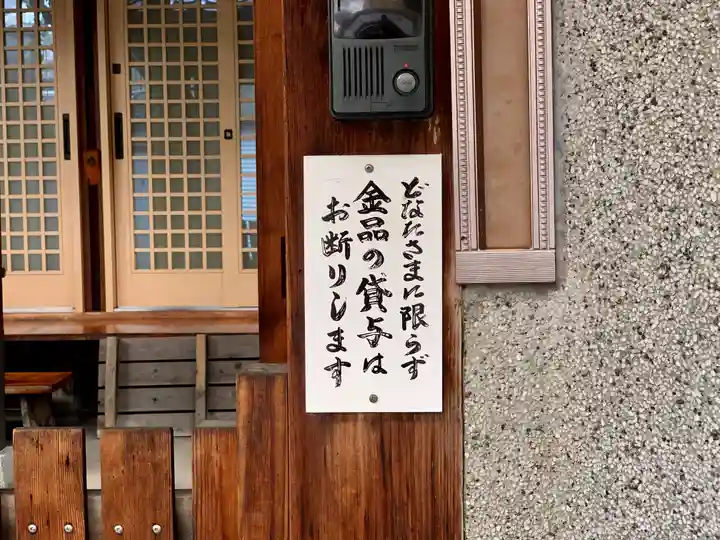 どなたさまに限らず
金品の貸与は
お断りします